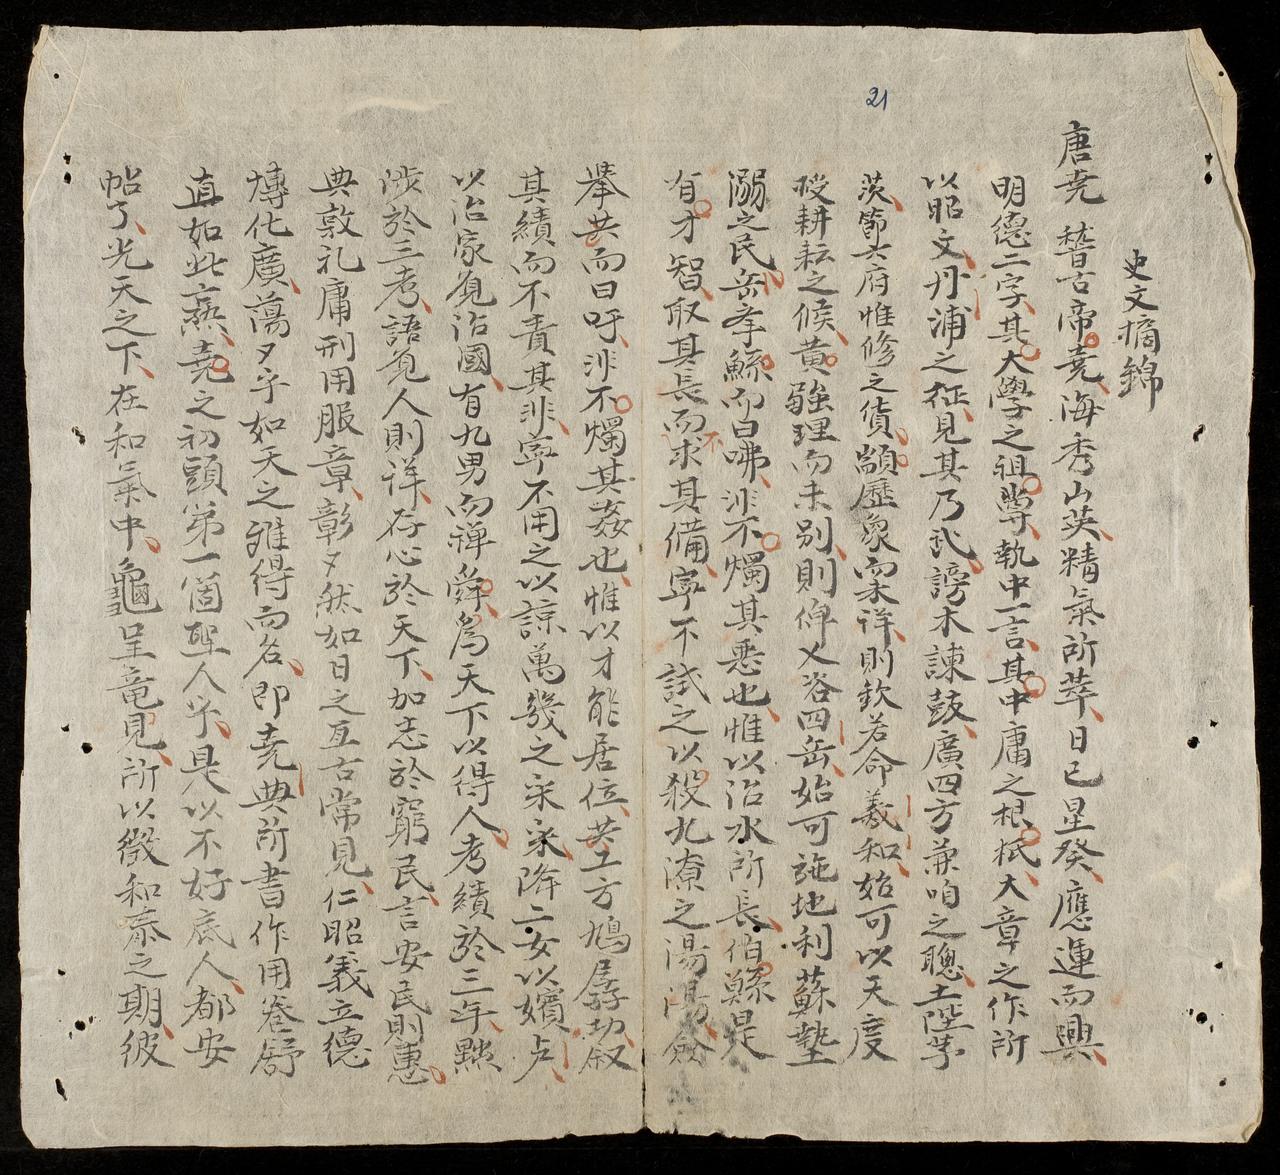 21
史文摘錦
唐堯 稽古帝堯海秀山英精氣所萃日巳星癸應運而興
明德二字其大學之祖尊執中一言其中庸之根柢大章之作所
以昭文丹浦之征見其乃武謗木諫鼓廣四方兼咱之聰土陛茅
茨節六府惟修之貨顓歷象而未詳則欽若命羲和始可以天度
授耕耘之候黄疆理而未別則俾乂咨四岳始可施地利蘇墊
溺之民岳牽鯀而曰咈非不燭其惡也惟以治水所長伯鯀是
有才智取其長而不求其備寧不試之以殺九潦之湯湯僉
舉共而曰吁非不燭其姦也惟以才能居位共工方鳩孱功叙
其績而不責其非寧不用之以諒萬幾之宷宷降二女以嬪虞
以治家覓治國有九男而禅舜爲天下以得人考績於三年黜
陟於三考語覓人則詳存心於天下加志於窮民言安民則惠
典敦礼庸刑用服章彰夕然如日之亙古常見仁昭義立德
博化廣蕩夕乎如天之難得而名即堯典所書作用卷舒
直如此蒸堯之初頭第一箇聖人乎是以不好底人都安
帖了光天之下在和氣中龜呈竜見所以徵和泰之期彼